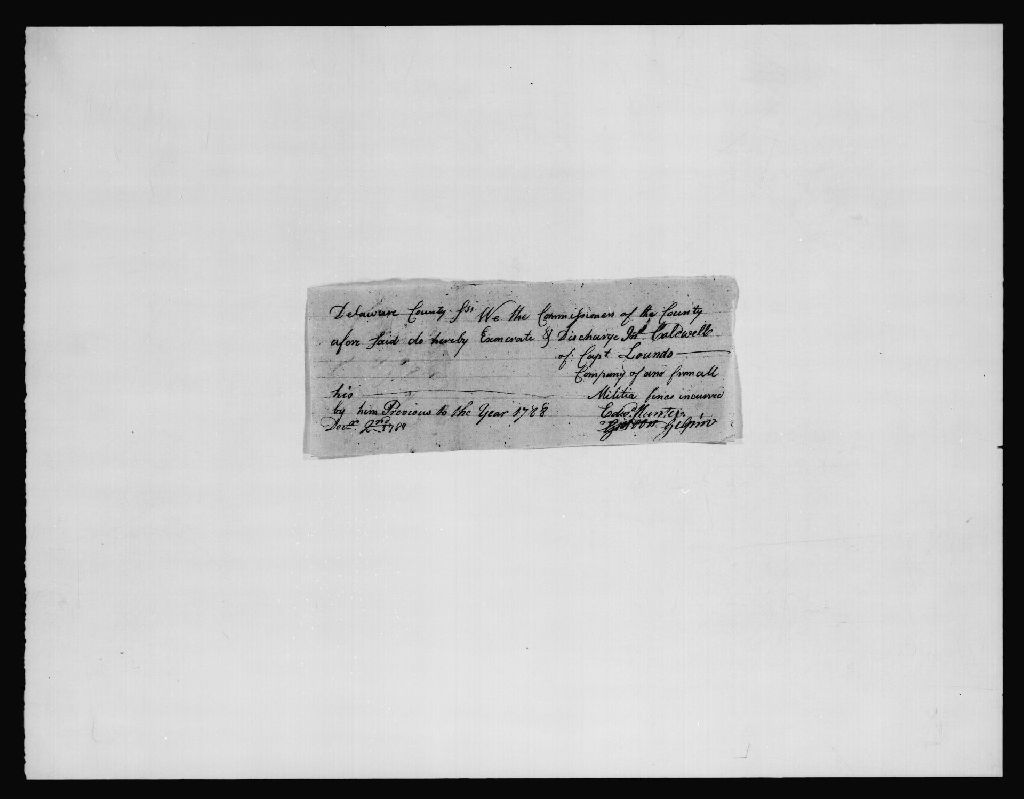 Delaware County Ss. We the Commissioners of the County
afore Said do hereby Exonerate & Discharge Caldwell
of Capt. Lounds
Company of and from all
his Militia fines incurred
by him Previous to the Year 1788
Edwd. Hunter
Decr. 2nd 1788 Gilpin